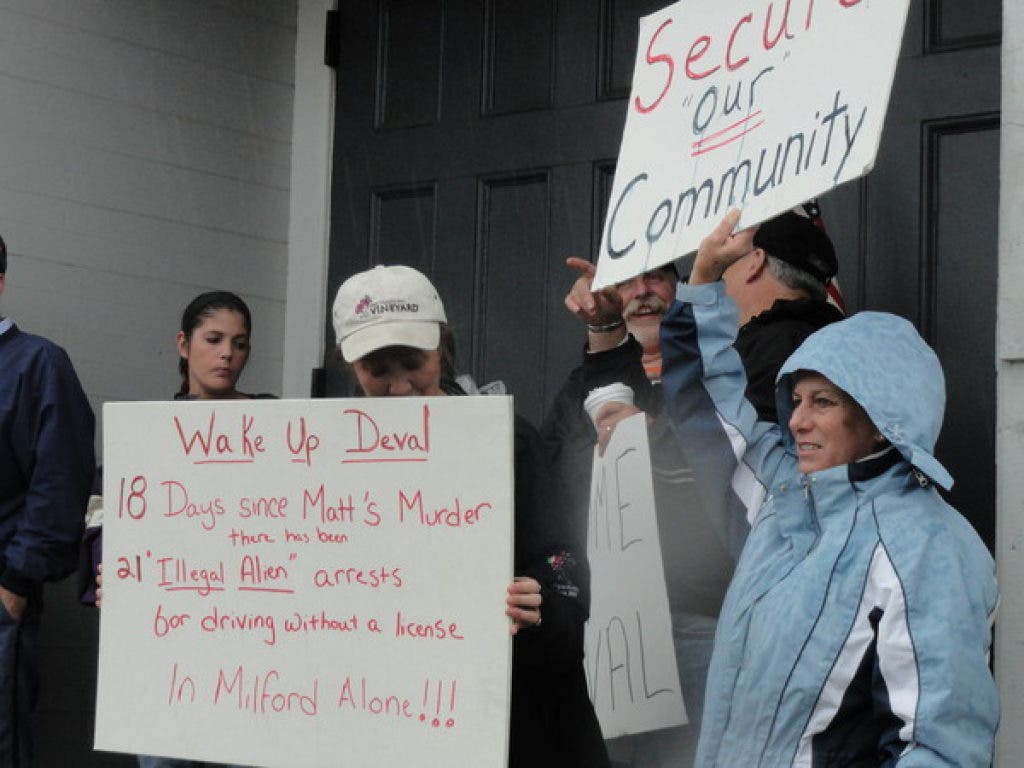 Secure
"our"
Community
VINEYARD
Wake Up Deval
18 Days since Matt's Murder
there has been
21 "Illegal Alien" arrests
for driving without a license
In Milford Alone!!!
ME
VAL